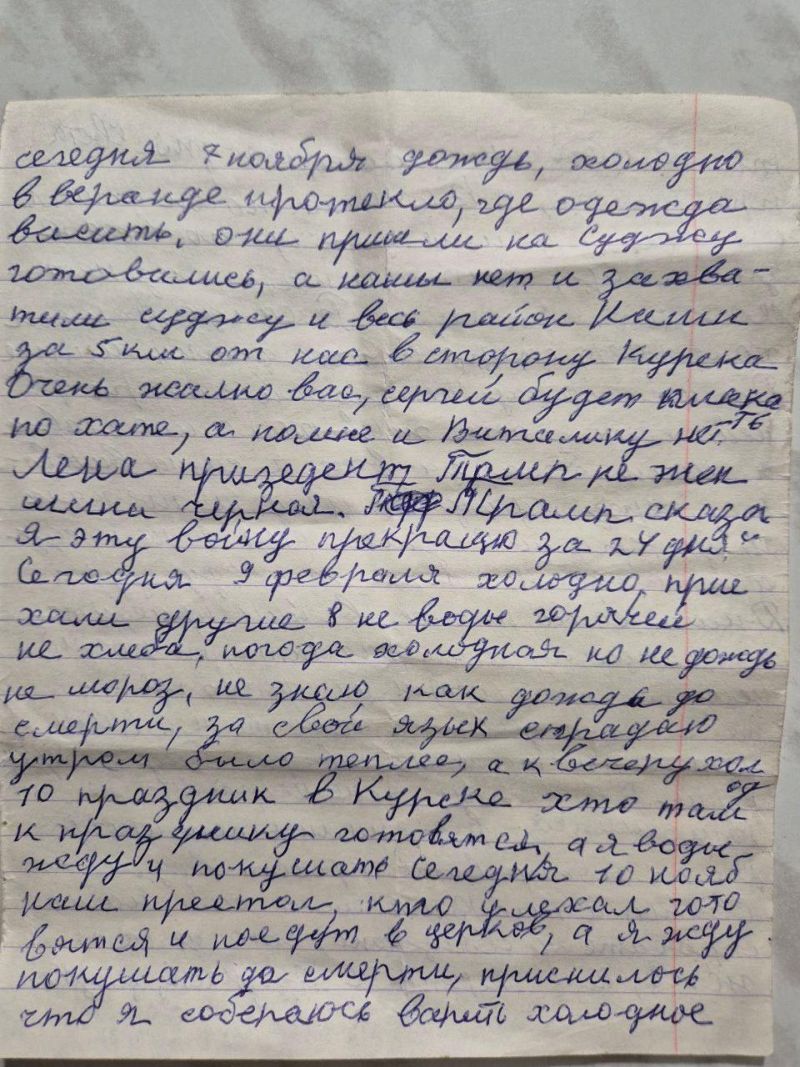 сегодня 7 ноября дождь, холодно
в веранде протекло, где одежда
васить, они пришли на Суджу
готовились, а нашы нет и захва-
тили суджу и весь район Наши
за 5 км от нас в сторону Курска
Очень жално вас, сергей будет плака
ть
по хате, а помне и Виталику нет.
Лена призедент Трамп не жен
щина черная. Трамп сказа
я эту войну прекращю за 24 дня"
Сегодня 9 февраля холодно, прие
хали другие 8 не воды горячей
не хлеба, погода холодная но не дождь
не мороз, не знаю как дожда до
смерти, за свой язык страдаю
утром было теплее, а к вечеру хол
од
10 праздник в Курске хто там
к празднику готовятся, а я воды
жду и покушать Сегодня 10 нояб
наш престол, кто уехал гото
вятся и поедут в церков, а я жду
покушать до смерти, приснилось
что я собераюсь варить холодное